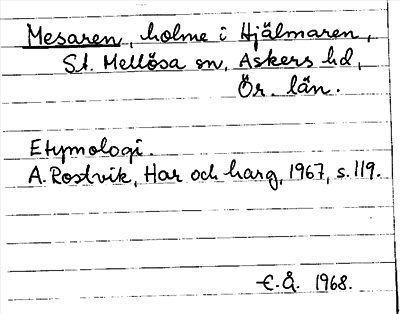 Mesaren, holme i Hjälmaren,
St. Mellösa sn, Askers hd,
Ör. län.
Etymologi.
A. Rostvik, Har och harg, 1967, s. 119.
E.Å. 1968.